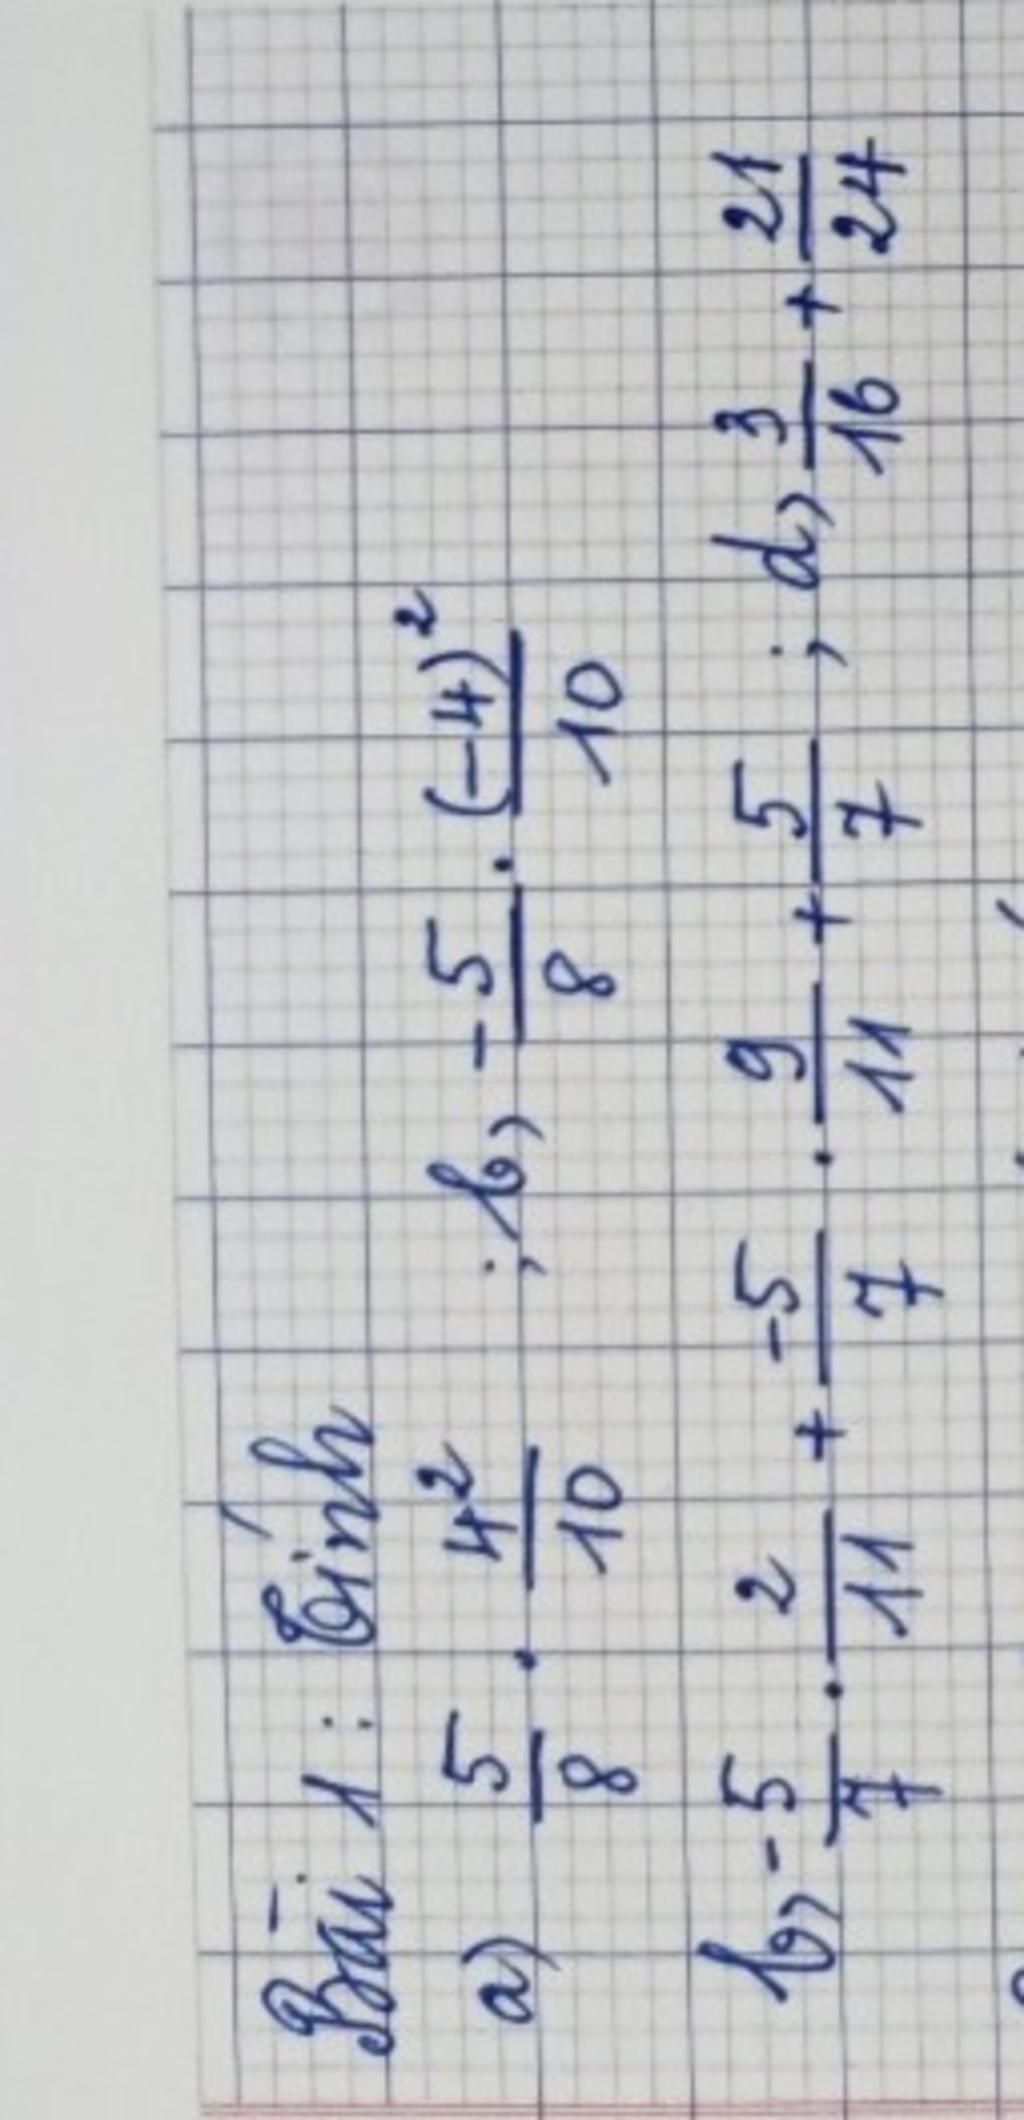 Bài 1: Tính
a) 5/8 . 4²/10 ; b, -5/8 . (-4)²/10
b, -5/7 . 2/11 + -5/7 . 9/11 + 5/7 ; d, 3/16 + 21/24